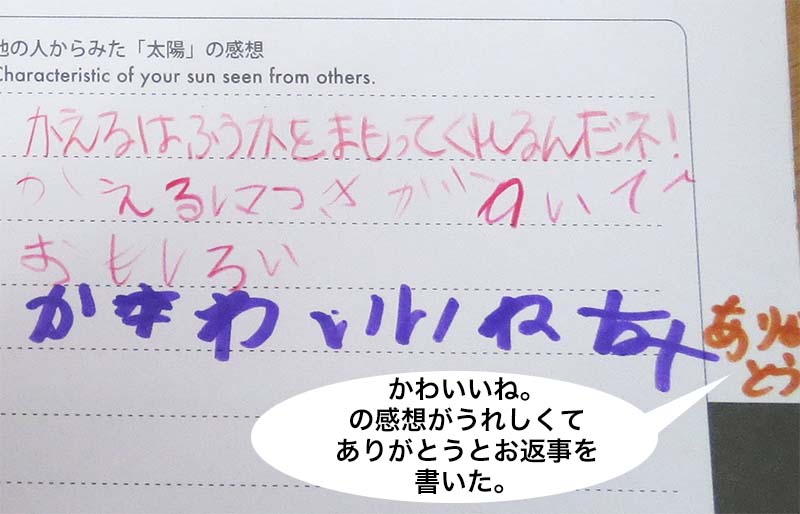 他の人からみた「太陽」の感想
Characteristic of your sun seen from others.
かえるはふうかをまもってくれるんだネ！
かえるにつきがついて
おもしろい
かわいいね
ありが
とう
かわいいね。
の感想がうれしくて
ありがとうとお返事を
書いた。